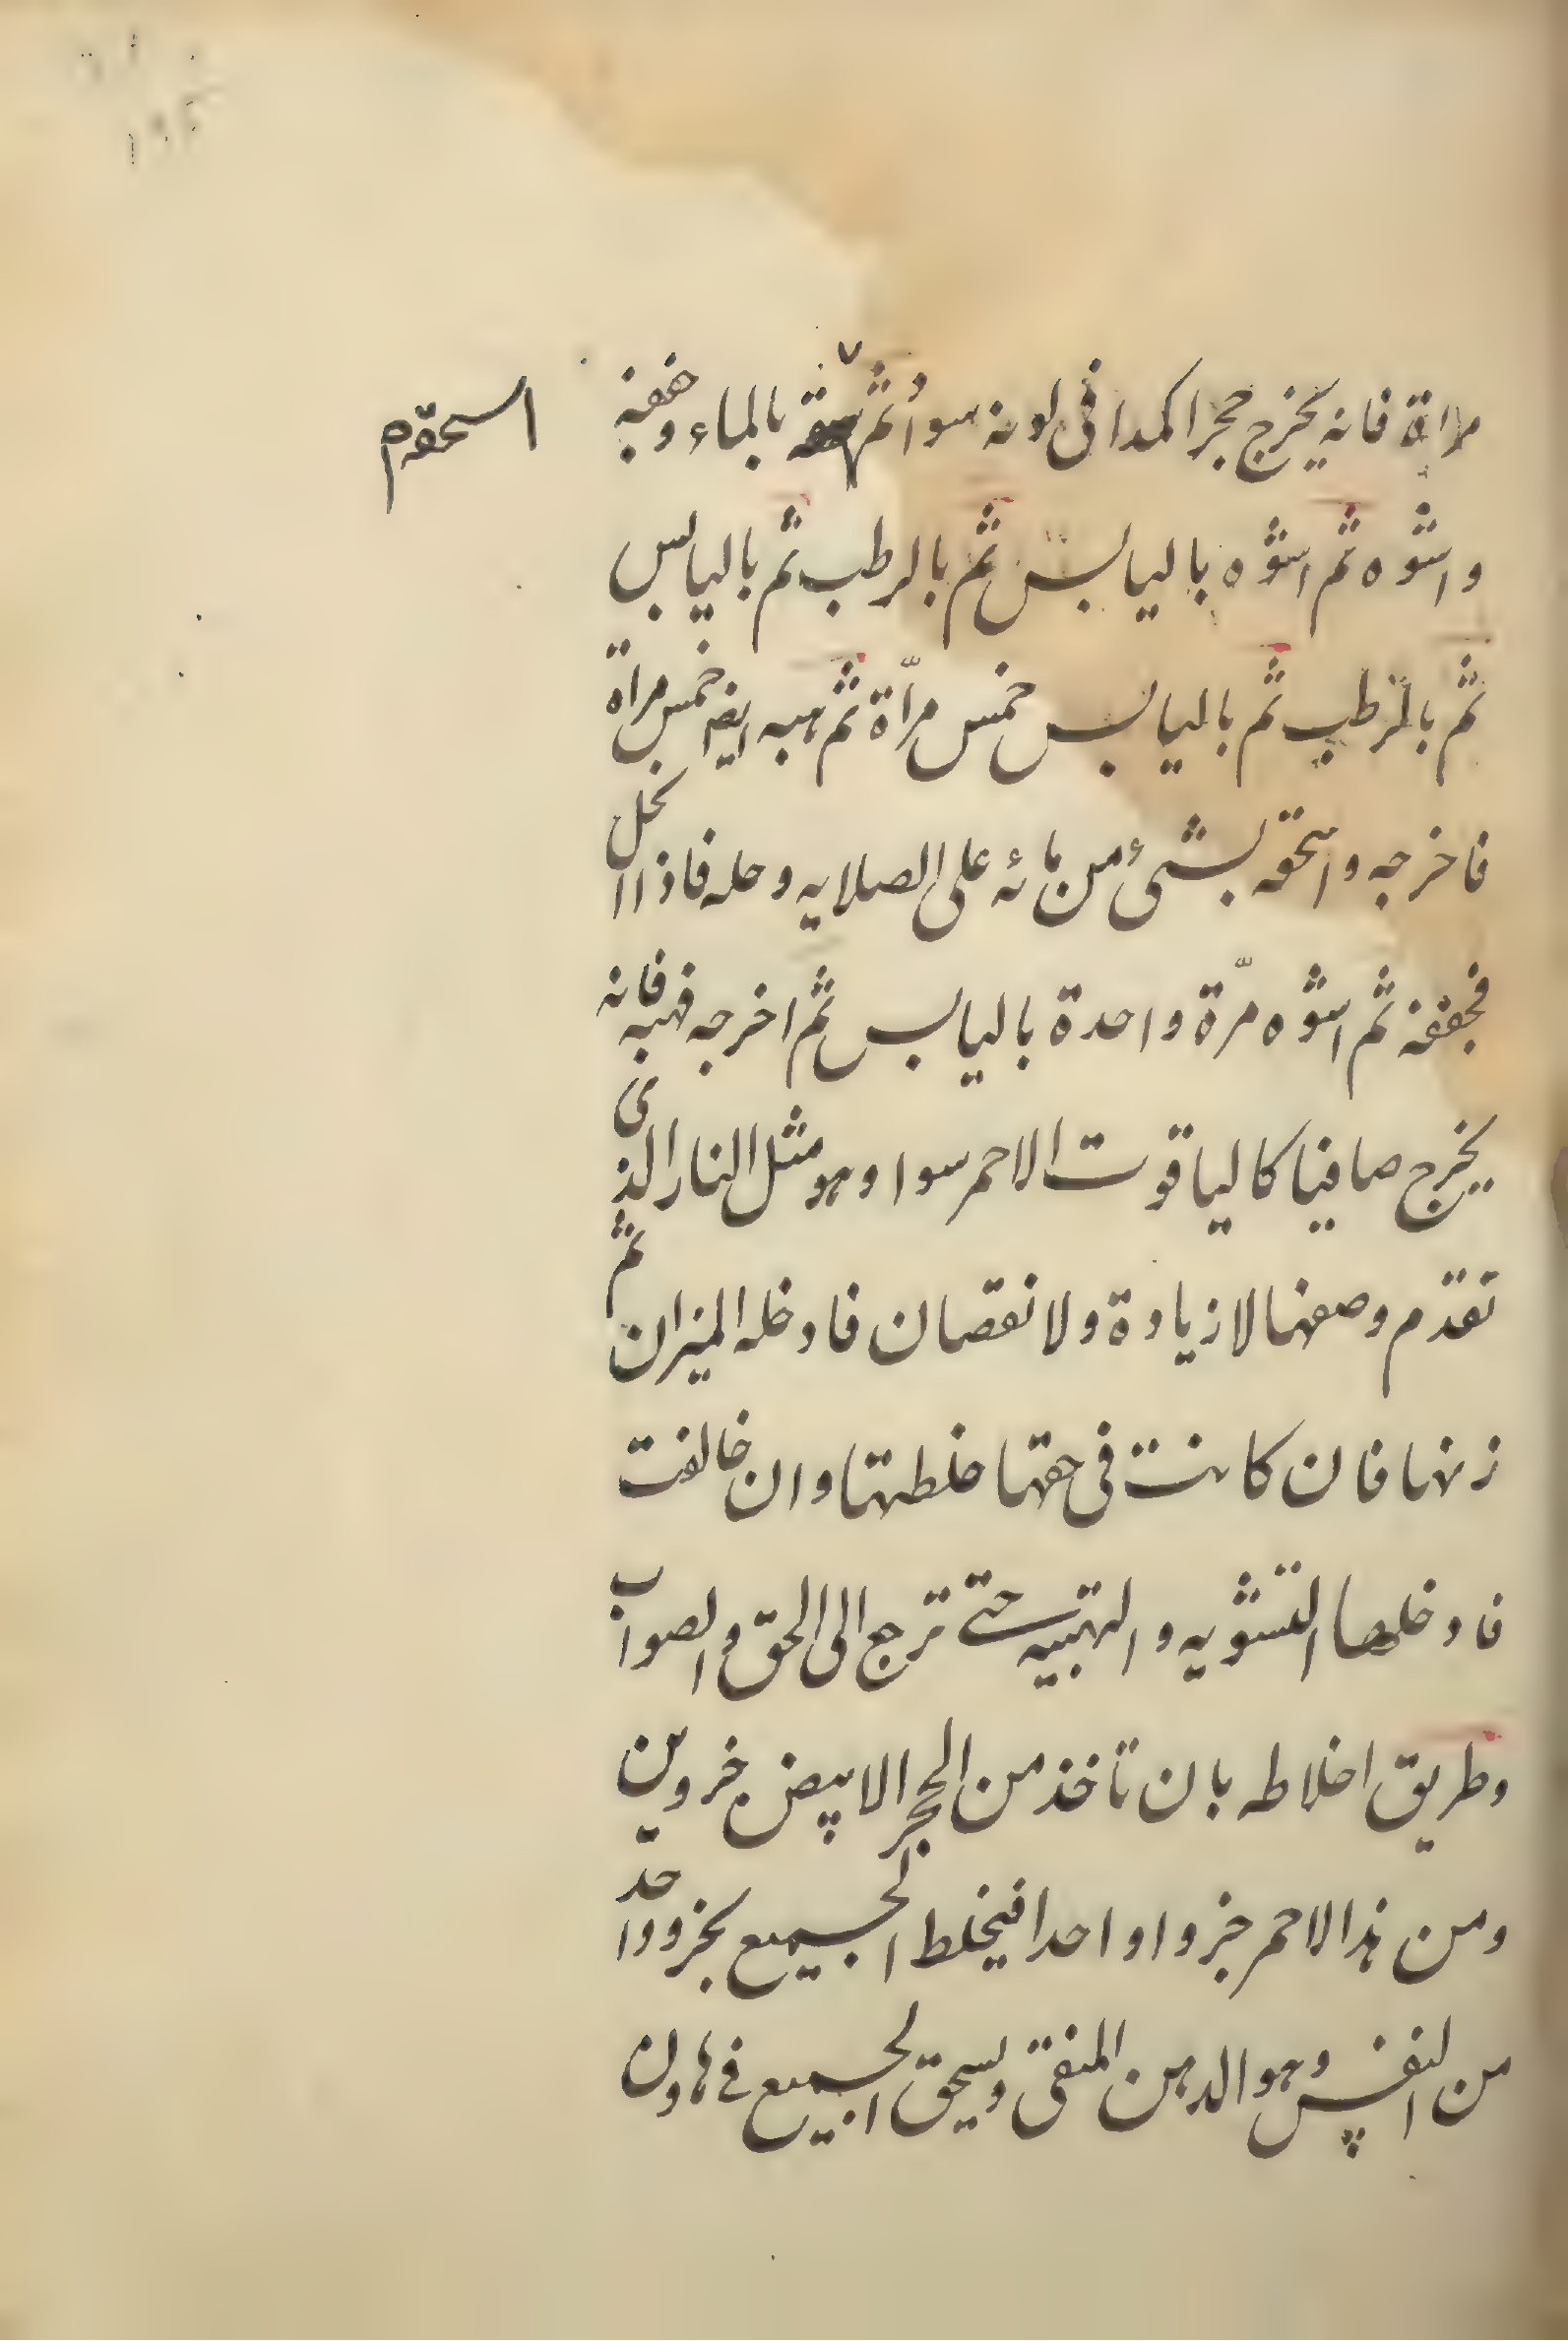 مراة فانه يخرج حجرا كمدا فى لونه سوأ ثم بالماء وجففه
اسحقه
واشوه ثم اشوه باليابس ثم بالرطب ثم باليابس
ثم بالرطب ثم باليابس خمس مرّاة ثم هبه ايضا خمس مراة
فاخرجه واسحقه بشىء من مائه على الصلايه وحله فاذا انحل
فجففه ثم اشوه مرّة واحدة باليابس ثم اخرجه فهبه فانه
يخرج صافيا كالياقوت الاحمر سوا وهو مثل النار الذى
تقدّم وصفها لا زيادة ولا نقصان فادخله الميزان ثم
زنها فان كانت فى حقها خلطتها وان خالفت
فادخلها التشويه والتهبيه حتى ترجع الى الحق والصواب
وطريق اخلاطه بان تاخذ من الحجر الابيض جزوين
ومن هذا الاحمر جزوا واحدا فيخلط الجميع بجزو واحد
من النفس وهو الدهن المنقى ويسحق الجميع فى هاون